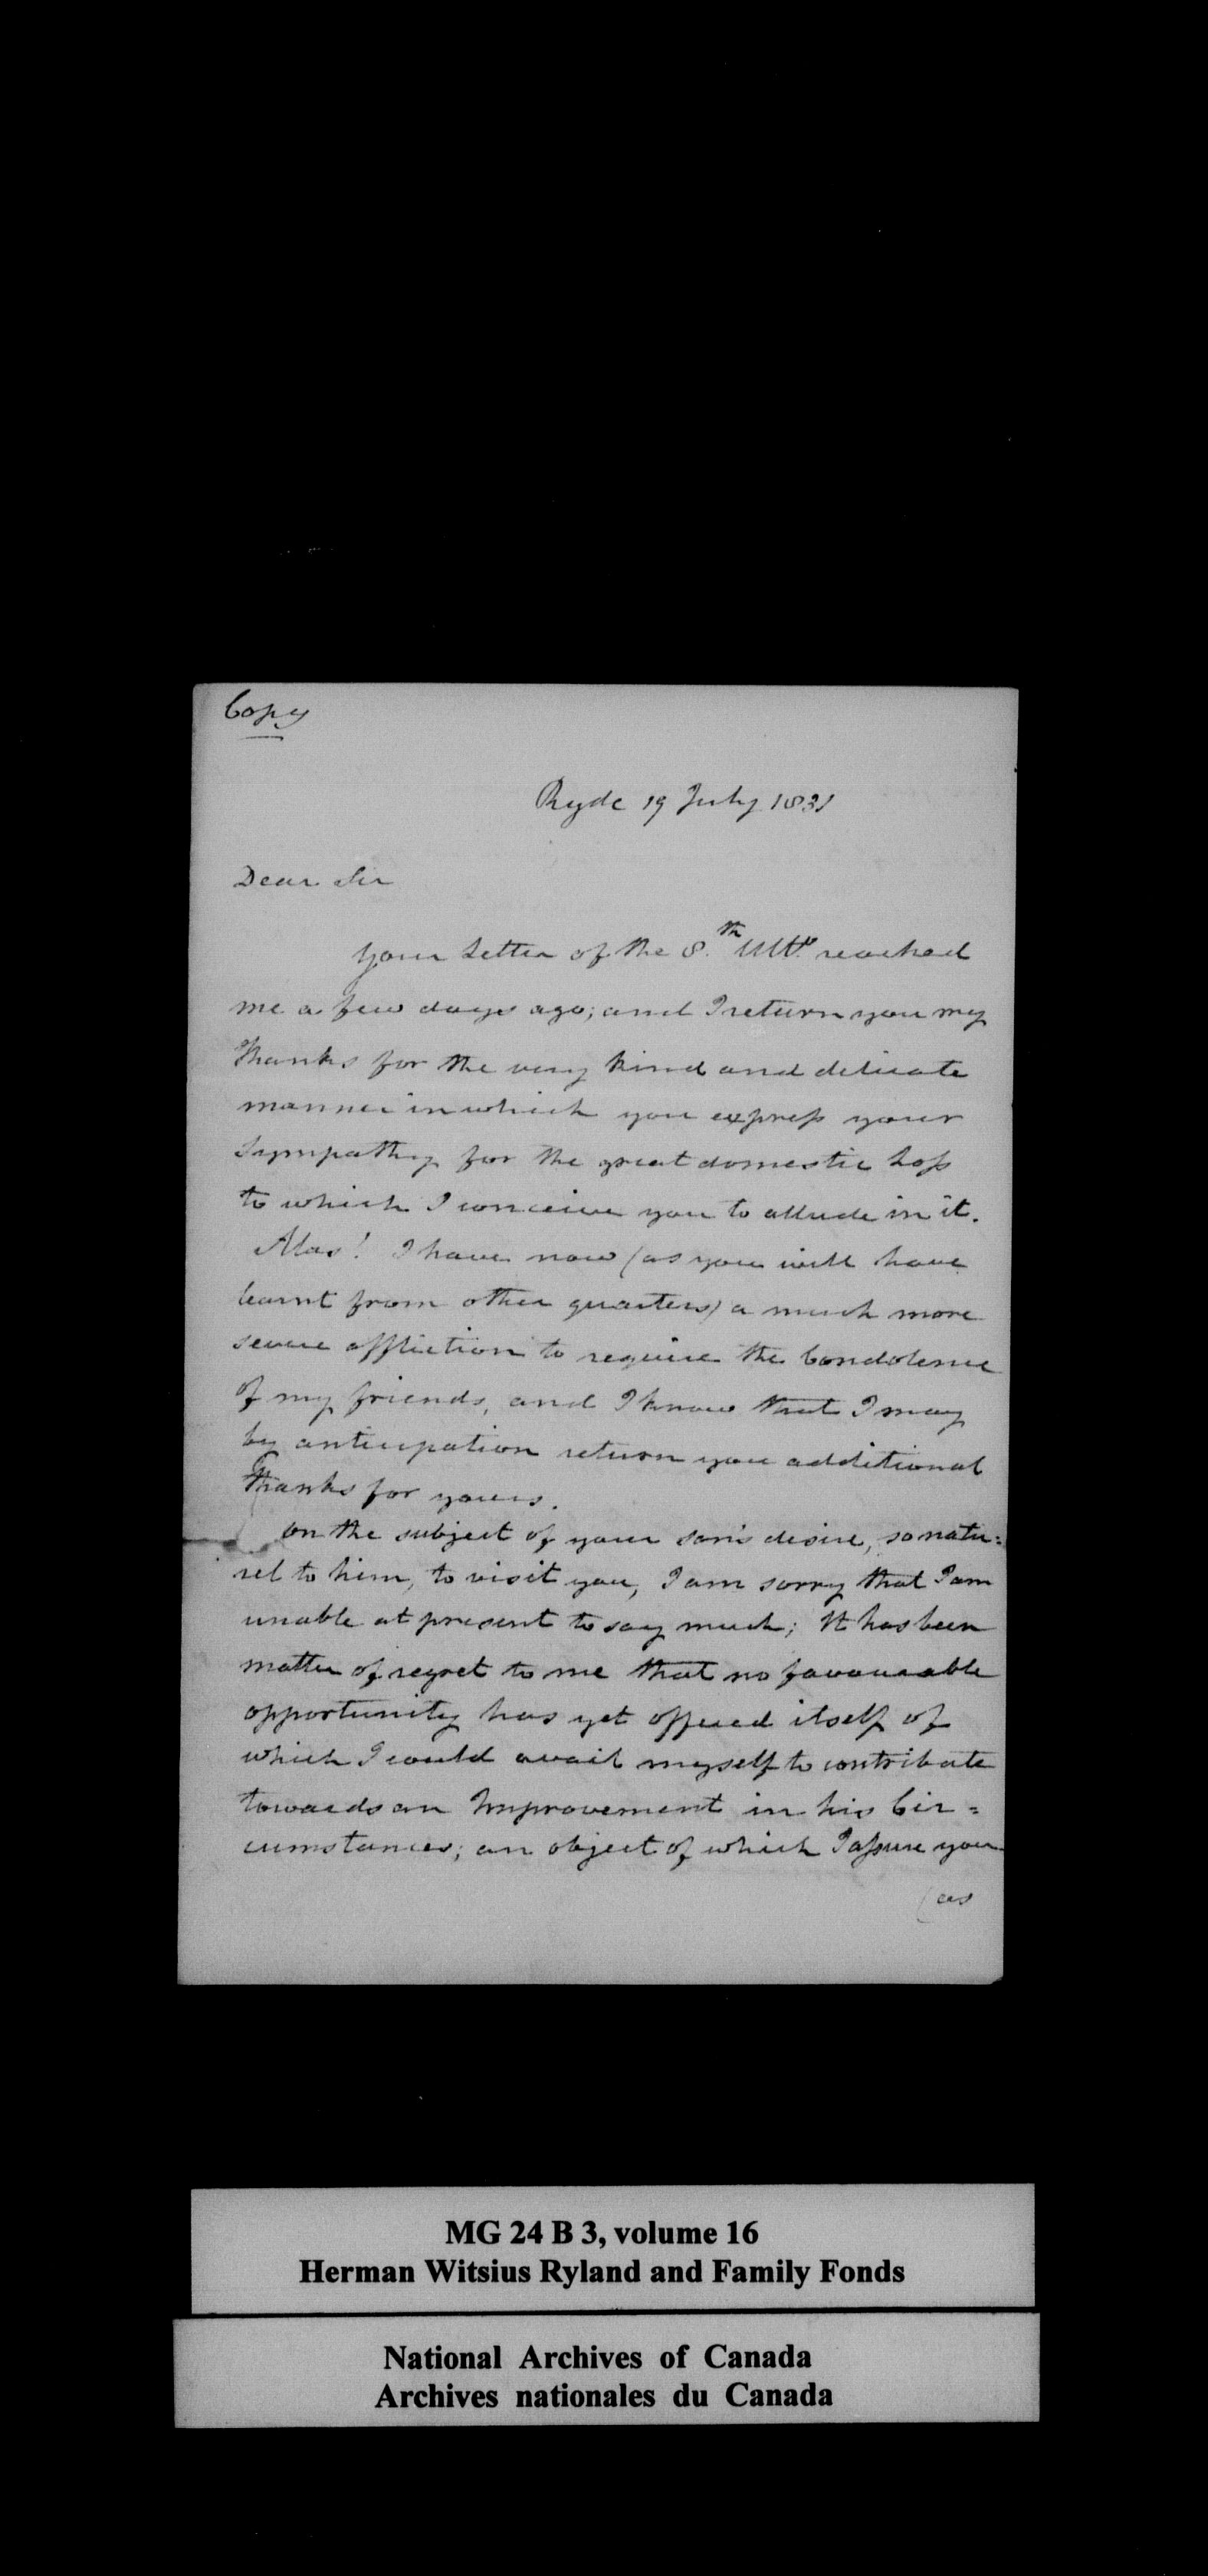 Copy
Ryde 19 July 1831
Dear Sir
Your Letter of the 8.th Ulto. reached
me a few days ago; and I return you my
Thanks for the very kind and delicate
manner in which you express your
Sympathy for the great domestic Loss
to which I conceive you to allude in it.
Alas! I have now (as you will have
learnt from other quarters) a much more
severe affliction to require the Condolence
of my friends, and I know that I may
by anticipation return you additional
Thanks for yours.
On the subject of your son's desire, so natu=
rel to him, to visit you, I am sorry that I am
unable at present to say much; It has been
matter of regret to me that no favourable
opportunity has yet offered itself of
which I could avail myself to contribute
towards an Improvement in his Cir=
cumstances; an object of which I assure you
(as
MG 24 B 3, volume 16
Herman Witsius Ryland and Family Fonds
National Archives of Canada
Archives nationales du Canada